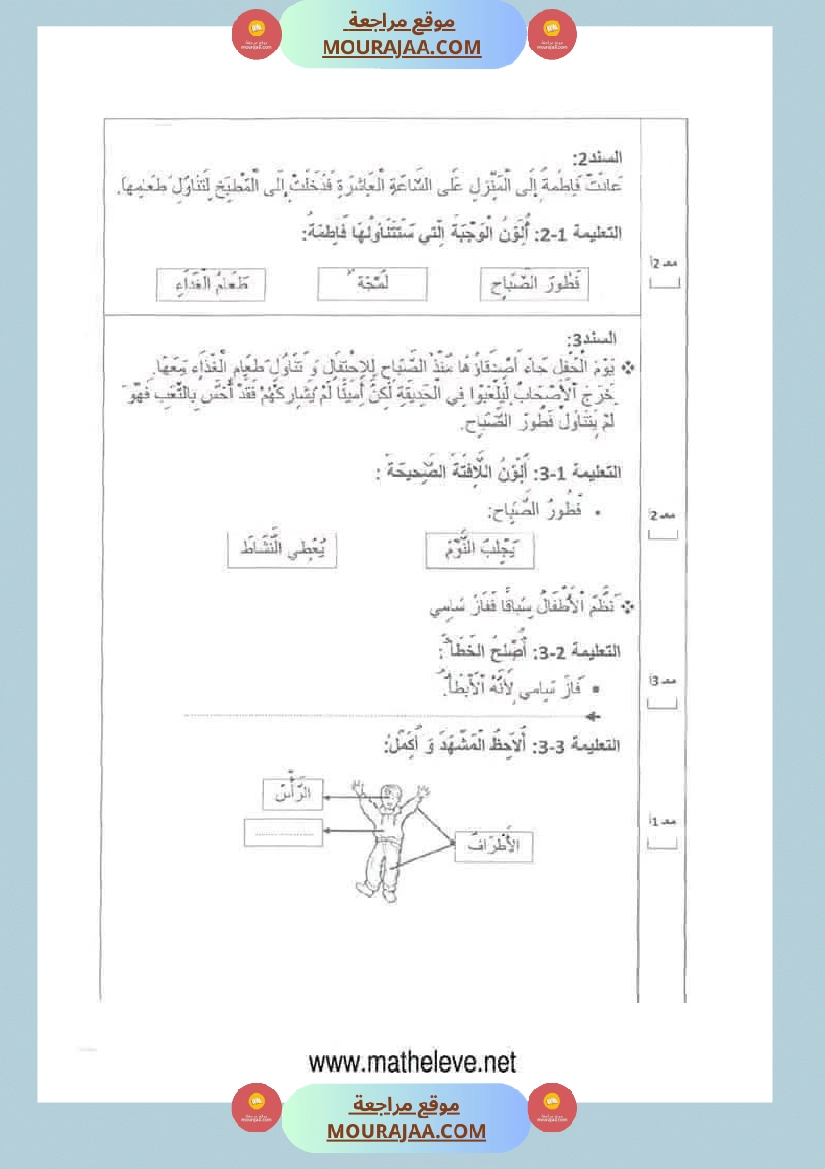 موقع مراجعة
MOURAJAA.COM
السند2:
عَادَتْ فَاطِمَةُ إِلَى الْمَنْزِلِ عَلَى السَّاعَةِ الْعَاشِرَةِ فَدَخَلَتْ إِلَى الْمَطْبَخِ لِتَتَنَاوَلَ طَعَامَهَا.
التعليمة 1-2: أُلَوِّنُ الْوَجْبَةَ الَّتِي سَتَتَنَاوَلُهَا فَاطِمَةُ:
معـ 2أ
فَطُورَ الصَّبَاحِ
لُمْجَة
طَعَامُ الْغَدَاءِ
السند3:
❖ يَوْمَ الْحَفْلِ جَاءَ أَصْدِقَاؤُهَا مُنْذُ الصَّبَاحِ لِلِاحْتِفَالِ وَ تَنَاوُلِ طَعَامِ الْغَدَاءِ مَعَهَا.
خَرَجَ الْأَصْحَابُ لِيَلْعَبُوا فِي الْحَدِيقَةِ لَكِنَّ أَمِينًا لَمْ يُشَارِكْهُمْ فَقَدْ أَحَسَّ بِالتَّعَبِ فَهُوَ
لَمْ يَتَنَاوَلْ فَطُورَ الصَّبَاحِ.
التعليمة 1-3: أُلَوِّنُ اللَّافِتَةَ الصَّحِيحَةَ :
• فَطُورُ الصَّبَاحِ:
معـ 2أ
يَجْلِبُ النَّوْمَ
يُعْطِي النَّشَاطَ
❖ نَظَّمَ الْأَطْفَالُ سِبَاقًا فَفَازَ سَامِي
التعليمة 2-3: أُصْلِحُ الْخَطَأَ :
معـ 3أ
▪ فَازَ سَامِي لِأَنَّهُ الْأَبْطَأُ.
التعليمة 3-3: أُلَاحِظُ الْمَشْهَدَ وَ أُكَمِّلُ:
الرَّأْسُ
معـ 1أ
الْأَطْرَافُ
www.matheleve.net
موقع مراجعة
MOURAJAA.COM